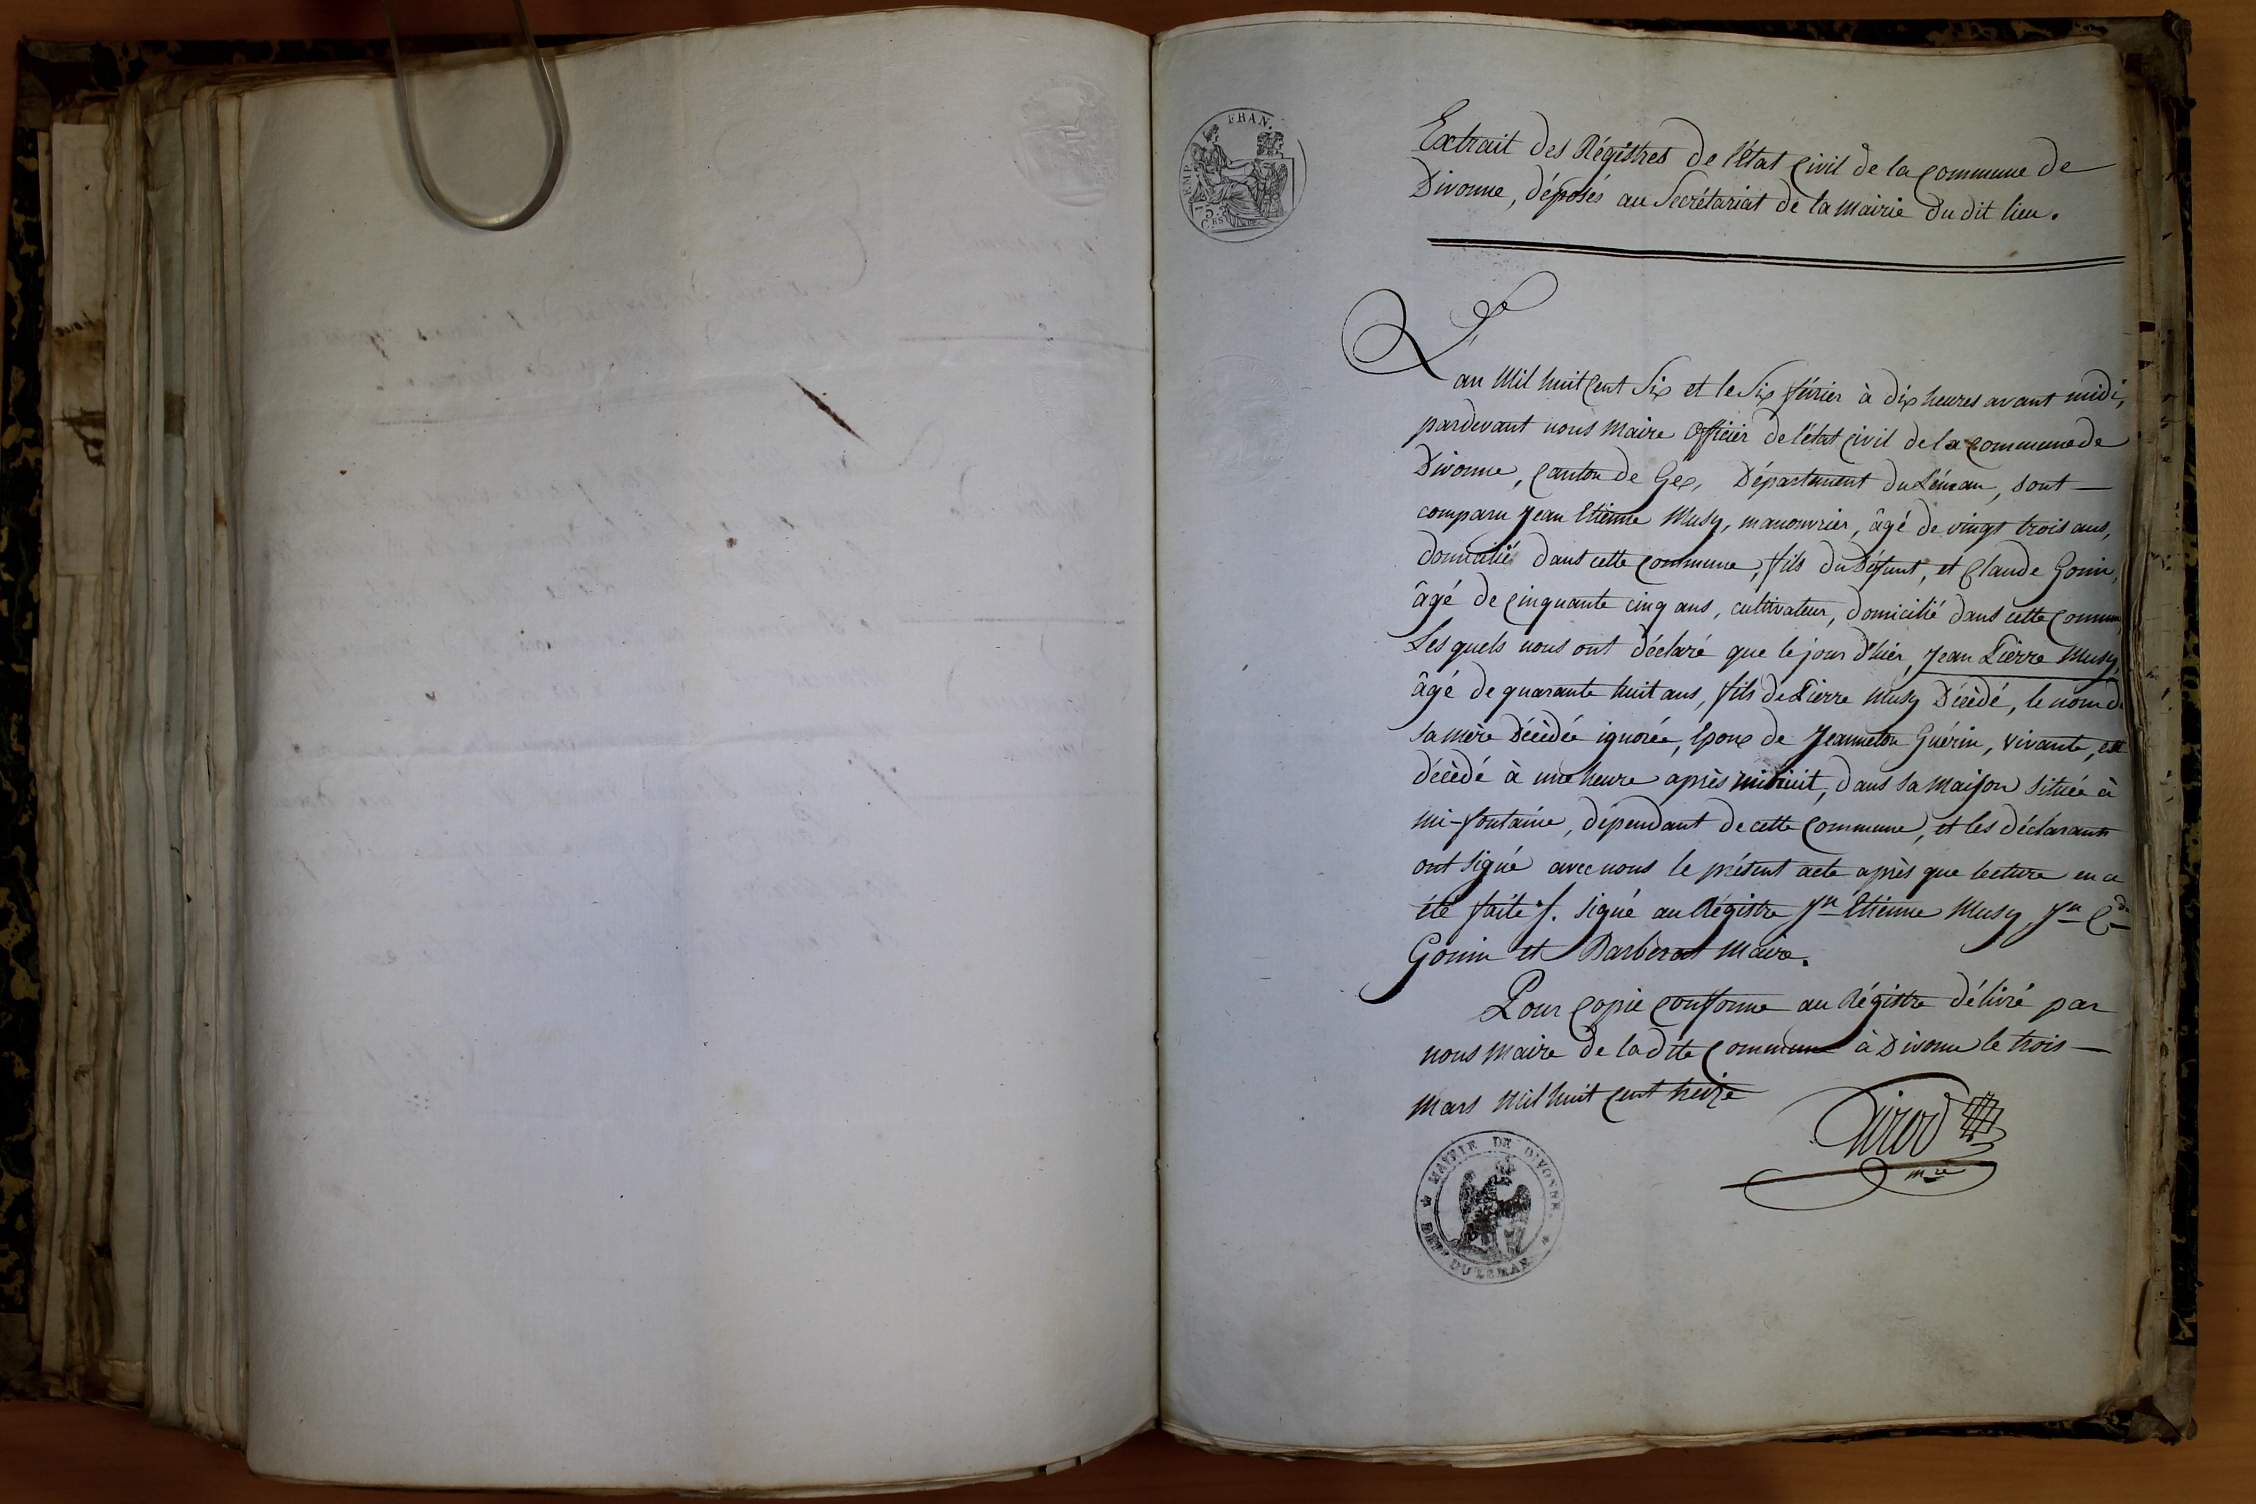 EMP. FRAN.
75
CES
Extrait des Régistres de l'état Civil de la Commune de
Divonne, déposés au Secrétariat de la mairie du dit lieu.
L'
an Mil huit Cent Six et le Six février à dix heures avant midi,
pardevant nous Maire Officier de l'état Civil de la Commune de
Divonne, Canton de Gex, Département du Léman, sont
comparu Jean Etienne Musy, manouvrier, âgé de vingt trois ans,
domicilié dans cette Commune, fils du défunt, et Claude Gonin,
âgé de Cinquante cinq ans, cultivateur, domicilié dans cette Commune,
Les quels nous ont déclaré que le jour d'hier, Jean Pierre Musy,
âgé de quarante huit ans, fils de Pierre Musy Décédé, le nom de
sa mère Décédée ignorée, Epoux de Jeanneton Guérin, vivante, est
décédé à une heure après minuit, dans sa maison située à
mi-fontaine, dépendant de cette Commune, et les déclarants
ont signé avec nous le présent acte après que lecture en a
été faite /. Signé au Régistre Jn Etienne Musy, Jn Cde
Gonin et Barberat Maire.
Pour Copie Conforme au Régistre délivré par
nous Maire de la dite Commune à Divonne le trois
Mars Mil huit Cent treize
Girod
mre
MAIRIE DE DIVONNE.
DEPT DU LEMAN